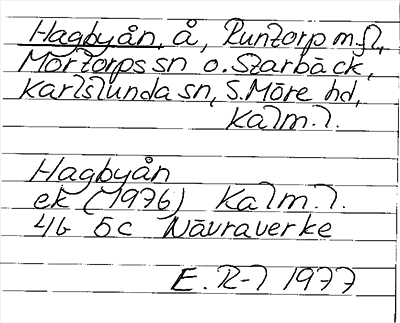 Hagbyån, å, Runtorp m.fl,
Mortorps sn o. Starbäck,
Karlslunda sn, S. Möre hd,
Kalm. l.
Hagbyån
ek (1976) Kalm. l.
4G 5c Nävraverke
E. R-l 1977